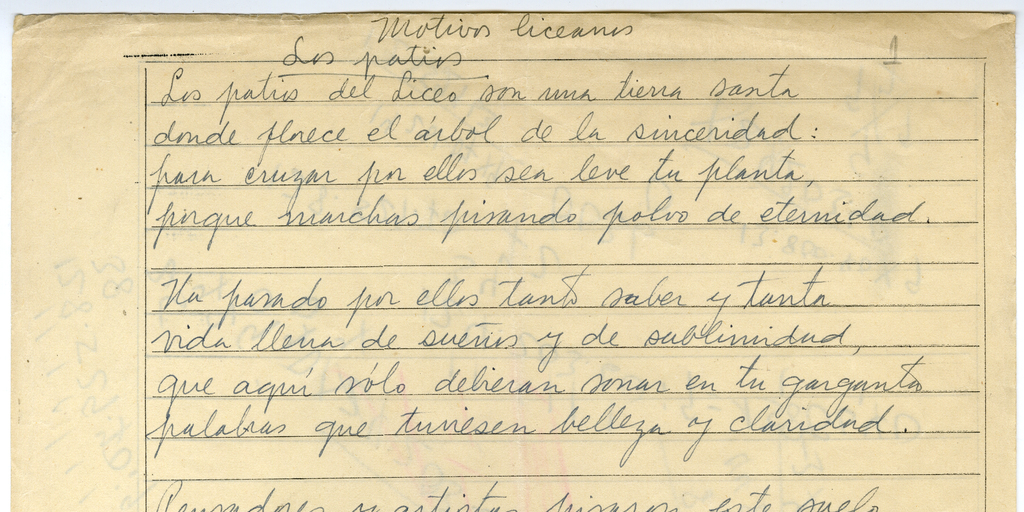 Motivos liceanos
1
Los patios
Los patios del Liceo son una tierra santa
donde florece el árbol de la sinceridad:
para cruzar por ellos sea leve tu planta,
porque marchas pisando polvo de eternidad.
Ha pasado por ellos tanto saber y tanta
vida llena de sueños y de sublimidad,
que aquí sólo debieran sonar en tu garganta
palabras que tuviesen belleza y claridad.
Pensadores y artistas pisaron este suelo